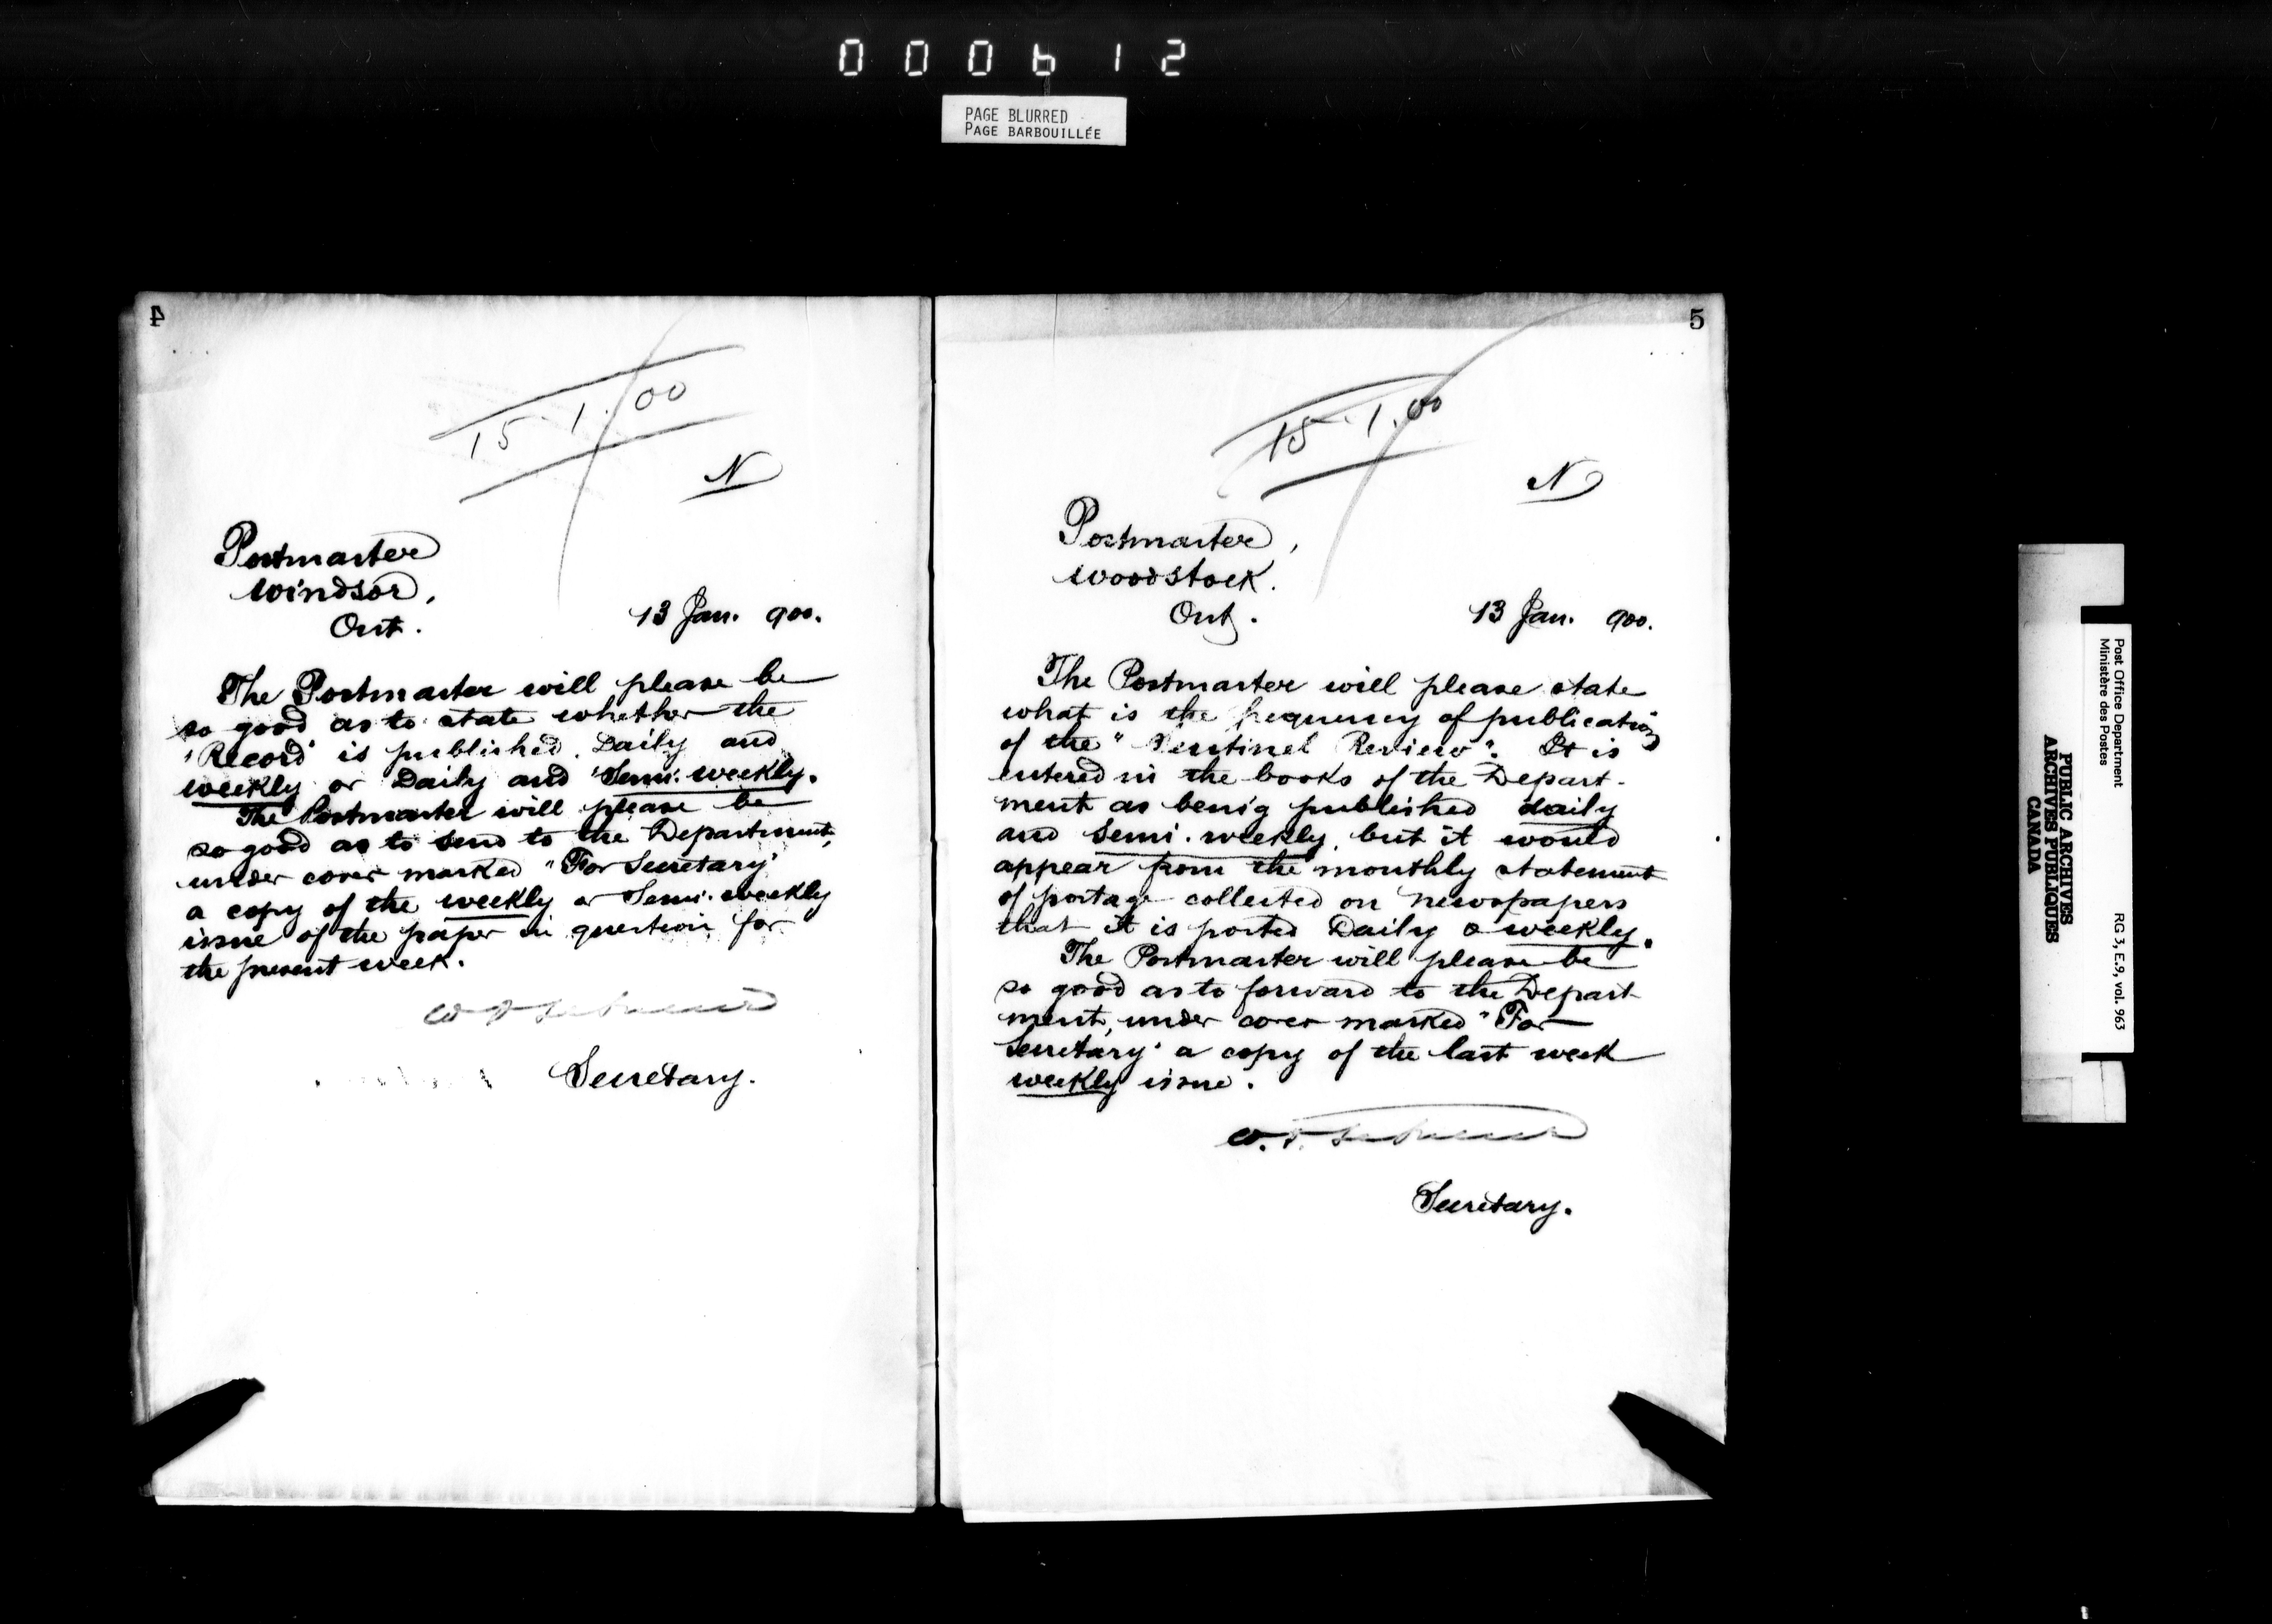 000612
PAGE BLURRED
PAGE BARBOUILLÉE
4
15.1.00
N
Postmaster
Windsor,
Ont.
13 Jan. 900.
The Postmaster will please be
so good as to state whether the
"Record" is published Daily and
weekly or Daily and Semi-weekly.
The Postmaster will please be
so good as to send to the Department,
under cover marked "For Secretary"
a copy of the weekly or Semi-weekly
issue of the paper in question for
the present week.
Secretary.
5
15.1.00
N
Postmaster,
Woodstock.
Ont.
13 Jan. 900.
The Postmaster will please state
what is the frequency of publication
of the "Sentinel Review". It is
entered in the books of the Depart-
ment as being published daily
and Semi-weekly, but it would
appear from the monthly statement
of postage collected on newspapers
that it is posted Daily & weekly.
The Postmaster will please be
so good as to forward to the Depart-
ment, under cover marked "For
Secretary" a copy of the last week
weekly issue.
Secretary.
Post Office Department
Ministère des Postes
RG 3, E.9, vol. 963
PUBLIC ARCHIVES
ARCHIVES PUBLIQUES
CANADA